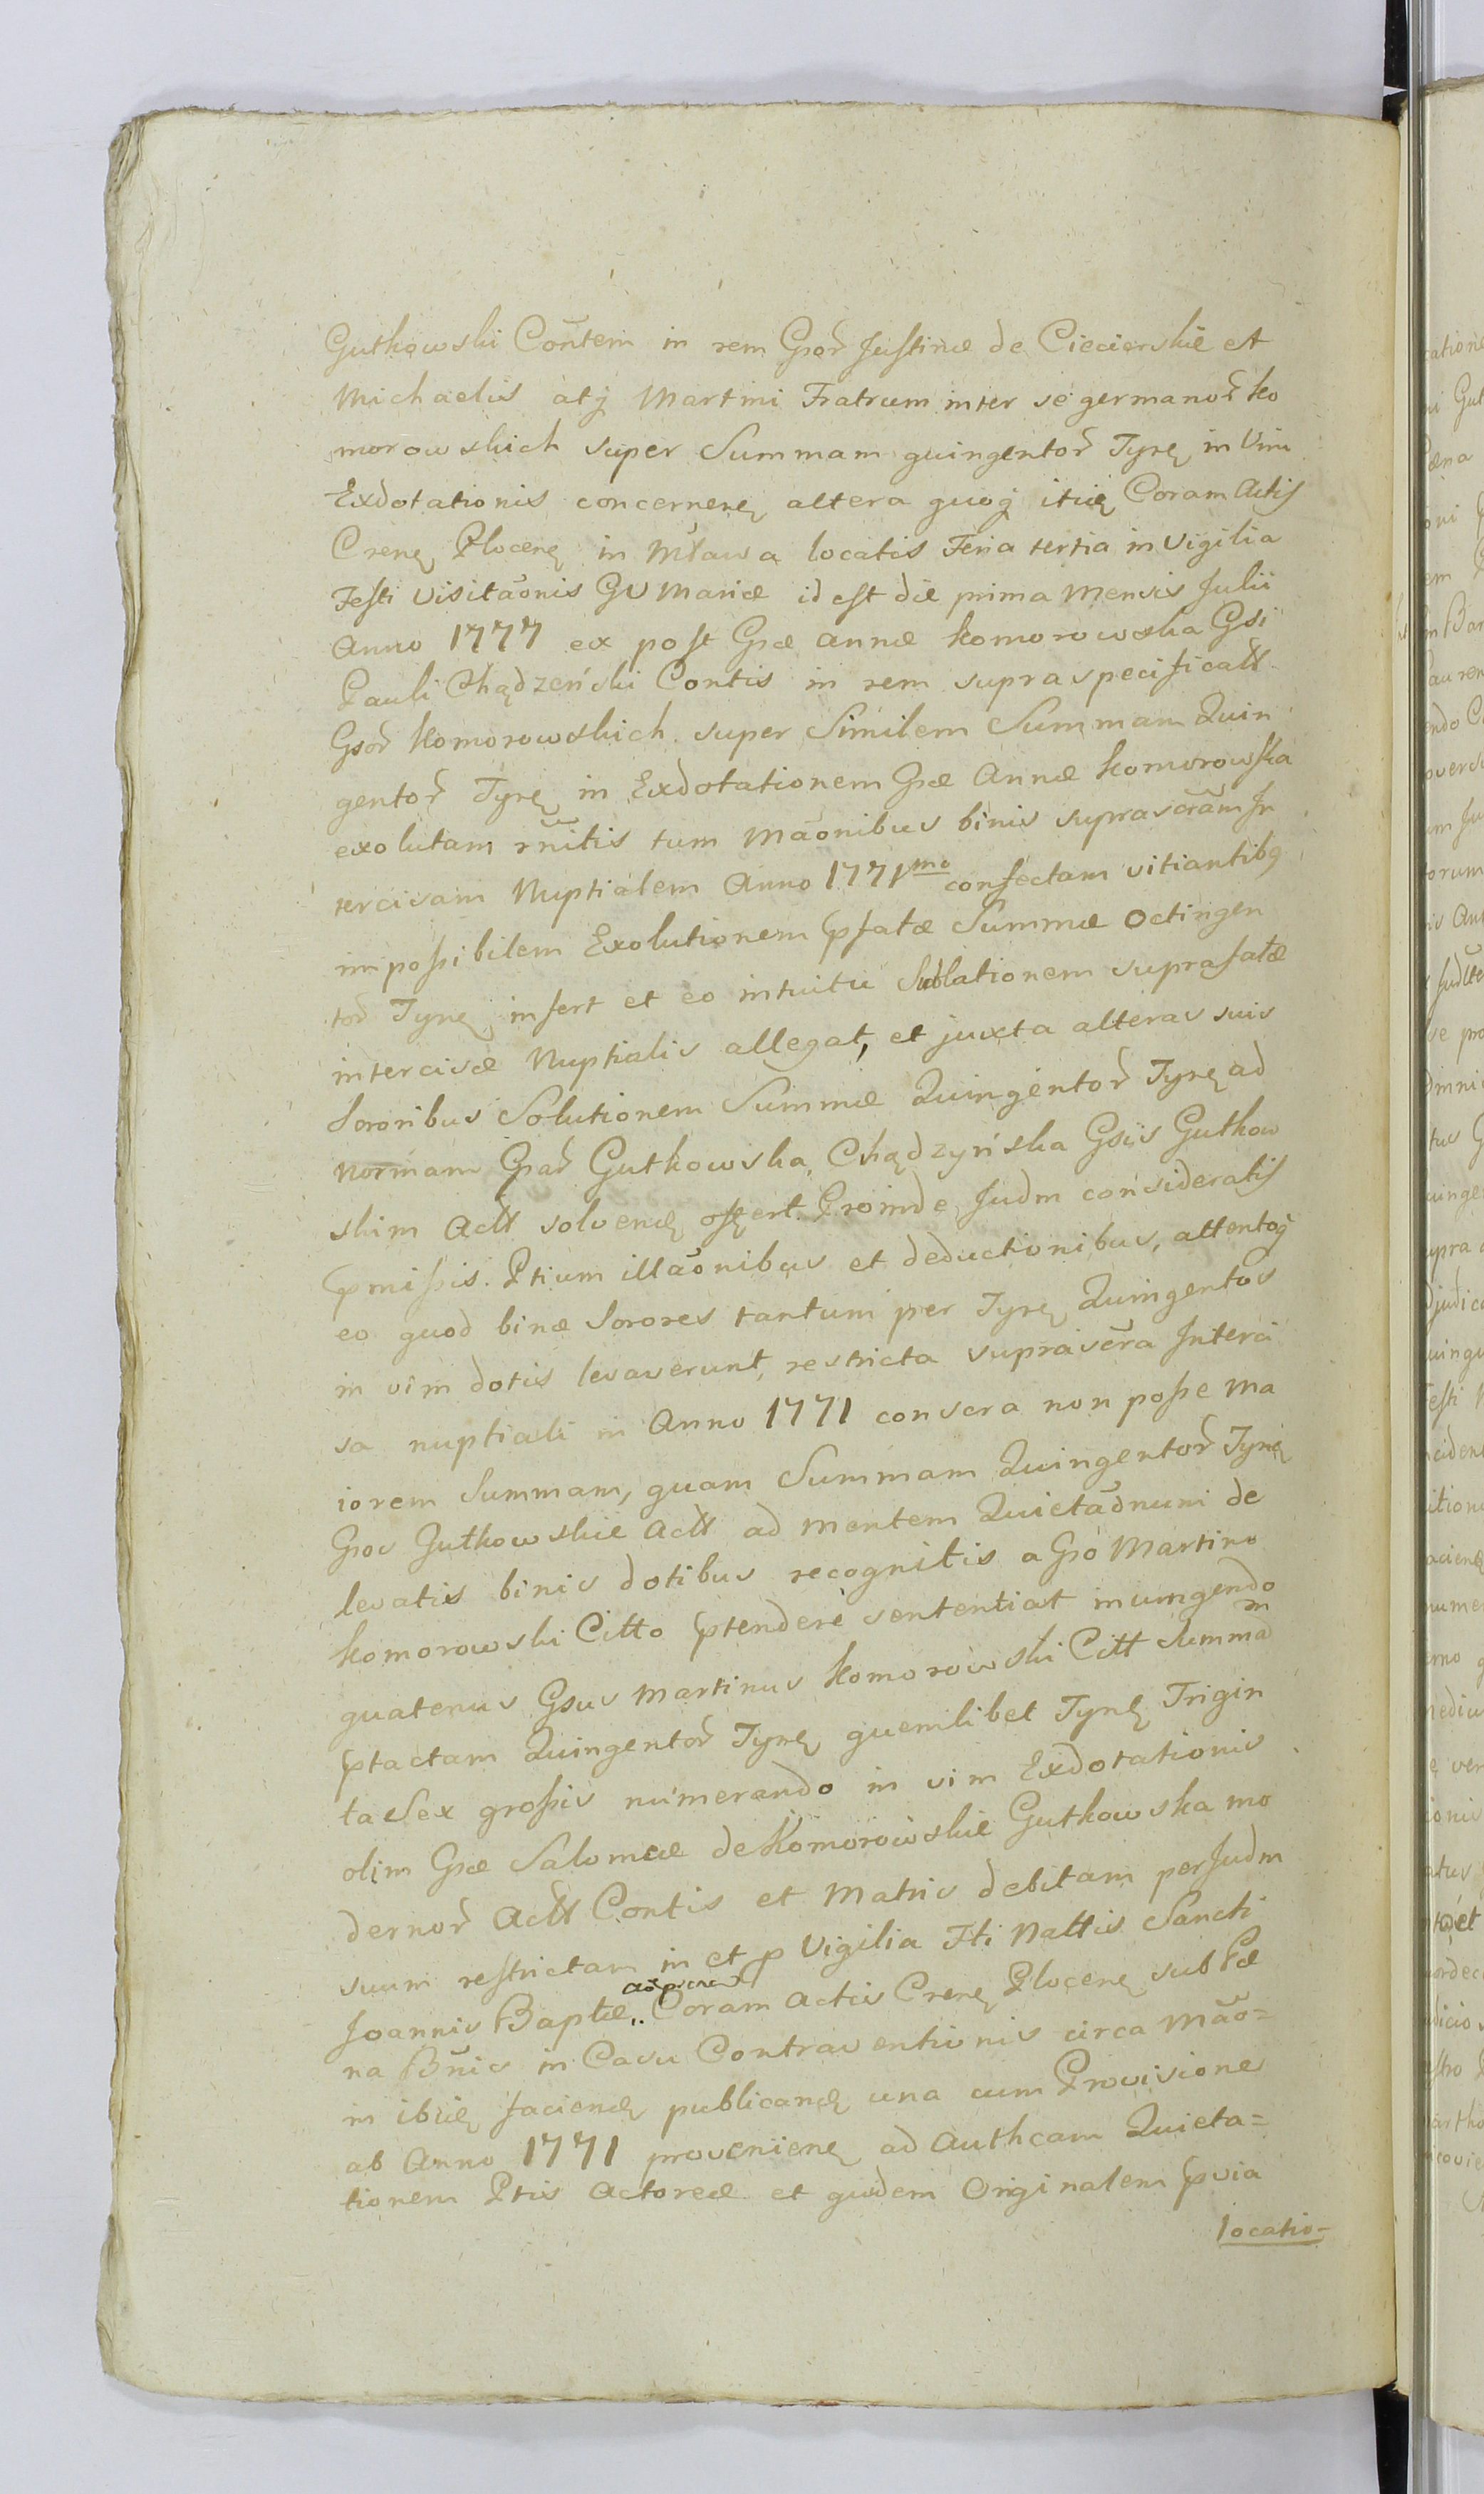 Gutkowski Contem in rem Gsor Justinæ de Cieciershie et
Michaelis atq Martini Fratrum inter se germanor Ko
morowskich super Summam quingentor Tynf in Vim
Exdotationis concernen altera quoq itid Coram Actis
Cren Plocen in Mława locatis Feria tertia in Vigilia
Festi Visitaonis GV Mariæ id est die prima Mensis Julii
Anno 1777 ex post Gsæ Annæ Komorowska Gsi
Pauli Chądzeński Contis in rem supraspecificatt
Gsor Komorowskich super Similem Summam Quin
gentor Tynf in Exdotationem Gsæ Annæ Komorowska
exolutam rnitis tum Maonibus binis suprascram In
tercisam Nuptialem Anno 1771mo confectam vitiantibq
impossibilem Exolutionem pfatæ Summæ Octingen
tor Tynf infert et eo intuitu Sublationem suprafatæ
intercisæ Nuptialis allegat, et juxta alteras suis
Sororibus Solutionem Summæ Quingentor Tynf ad
Normam Gsar Gutkowska, Chądzyńska Gsiis Gutkow
skim Actt solvend offert. Proinde Judm consideratis
pmissis Ptium illaonibus et deductionibus, attentoq
eo quod binæ Sorores tantum per Tynf Quingentos
in vim dotis levaverunt, restricta suprascra Interci
sa nuptiali in Anno 1771 conscra non posse ma
iorem Summam, quam Summam Quingentor Tynf
Gsos Gutkowskie Actt ad mentem Quietaonum de
levatis binis dotibus recognitis a Gso Martino
Komorowski Citto ptendere sententiat iniungendo
quatenus Gsus Martinus Komorowski Citt Summam
ptactam Quingentor Tynf quemlibet Tynf Trigin
ta Sex grossis numerando in vim Exdotationis
olim Gsæ Salomeæ de Komorowskie Gutkowska mo
dernor Actt Contis et Matris debitam per Judm
suum restrictam in et p Vigilia Fti Nattis Sancti
Joannis Baptæ, Coram Actis Cren Plocen sub Pæ
na Bnis in Casu Contraventionis circa Mão=
in ibid faciend publicand una cum Provisione
ab Anno 1771 provenien ad Authcam Quieta=
tionem Ptis Actoreæ et quidem Originalem pvia
locatio-